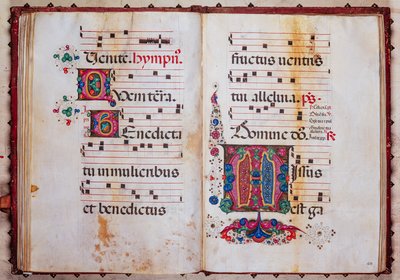 Venite. Hympn⁹.
Quem terra.
Benedicta
tu in mulieribus
et benedictus
fructus ventris
tui alleluia. ps.
Domine
Missus
est ga